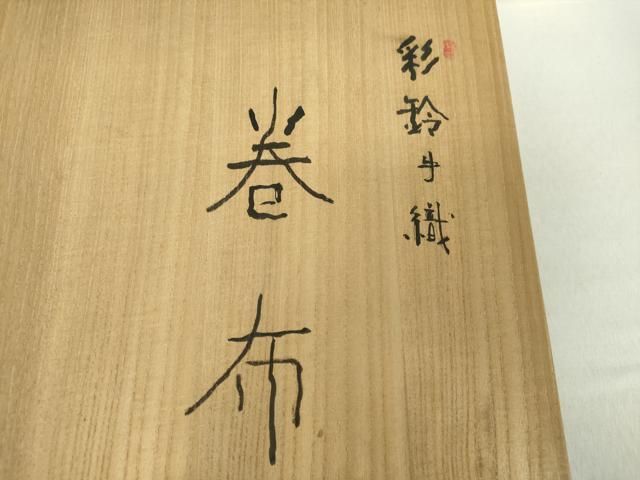 彩鈴手織
巻布